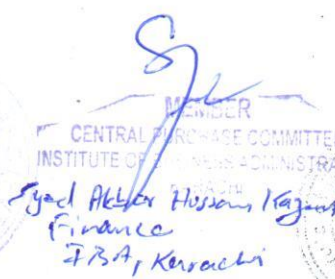 MEMBER
CENTRAL PURCHASE COMMITTEE
INSTITUTE OF BUSINESS ADMINISTRA
KARACHI
Syed Akhtar Hussain Kazmi
Finance
IBA, Karachi